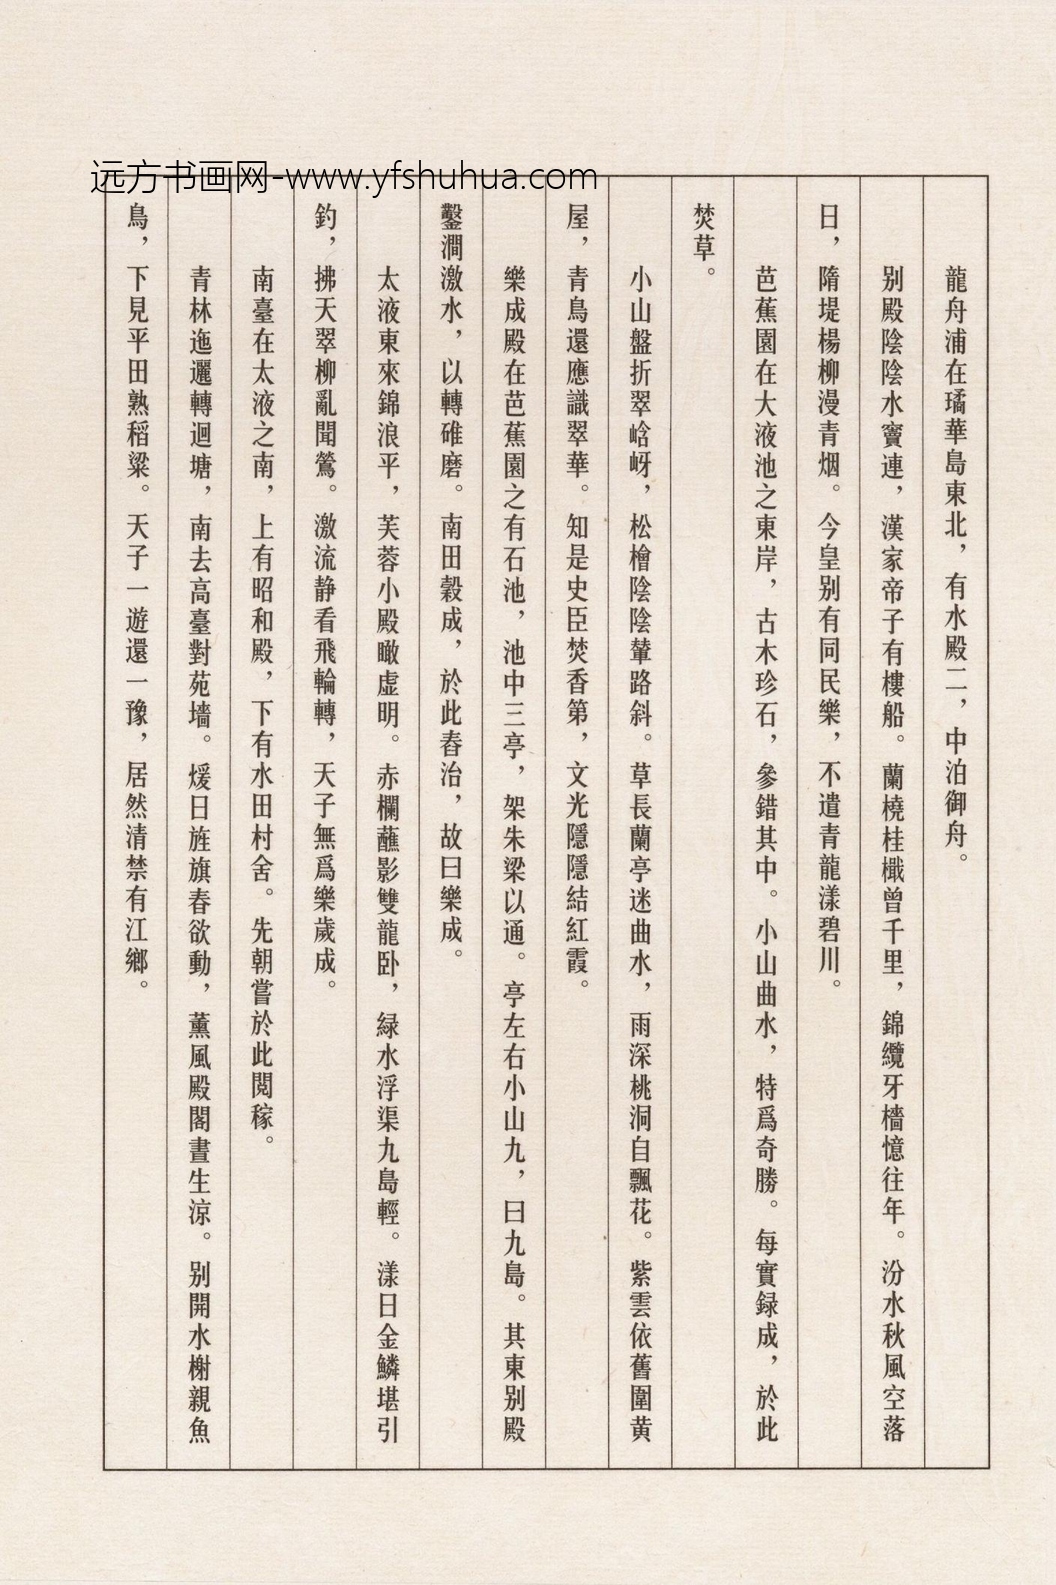 远方书画网-www.yfshuhua.com
龍舟浦在璚華島東北，有水殿二，中泊御舟。
别殿陰陰水竇連，漢家帝子有樓船。蘭橈桂檝曾千里，錦纜牙檣憶往年。汾水秋風空落
日，隋堤楊柳漫青烟。今皇别有同民樂，不遣青龍漾碧川。
芭蕉園在大液池之東岸，古木珍石，參錯其中。小山曲水，特爲奇勝。每實録成，於此
焚草。
小山盤折翠峆岈，松檜陰陰輦路斜。草長蘭亭迷曲水，雨深桃洞自飄花。紫雲依舊圍黄
屋，青鳥還應識翠華。知是史臣焚香第，文光隱隱結紅霞。
樂成殿在芭蕉園之有石池，池中三亭，架朱梁以通。亭左右小山九，曰九島。其東别殿
鑿澗激水，以轉碓磨。南田穀成，於此舂治，故曰樂成。
太液東來錦浪平，芙蓉小殿瞰虚明。赤欄蘸影雙龍卧，緑水浮渠九島輕。漾日金鱗堪引
釣，拂天翠柳亂聞鶯。激流静看飛輪轉，天子無爲樂歲成。
南臺在太液之南，上有昭和殿，下有水田村舍。先朝嘗於此閲稼。
青林迤邐轉迴塘，南去高臺對苑墙。煖日旌旗春欲動，薰風殿閣晝生涼。别開水榭親魚
鳥，下見平田熟稻粱。天子一遊還一豫，居然清禁有江鄉。